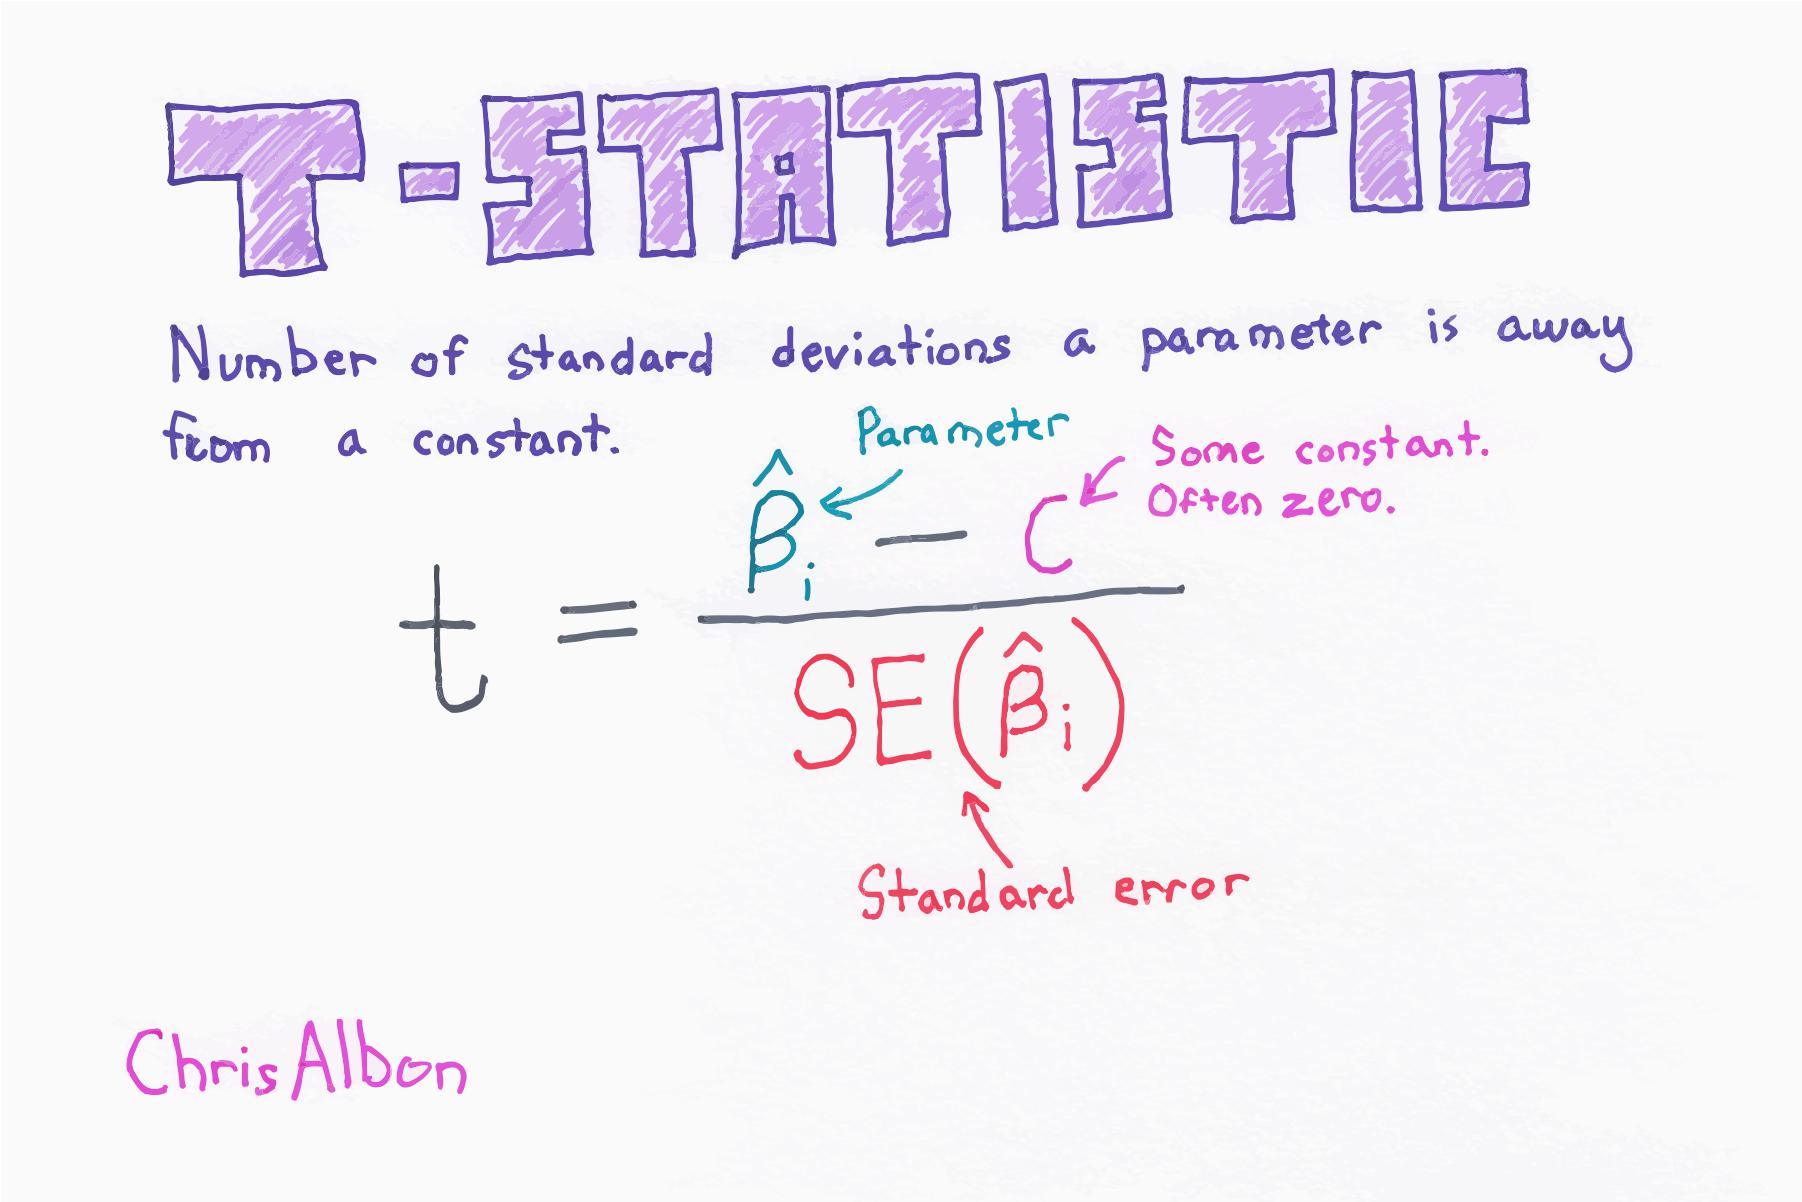 T-STATISTIC
Number of standard deviations a parameter is away
from a constant.
Parameter
Some constant.
Often zero.
t = (β̂i − C) / SE(β̂i)
Standard error
ChrisAlbon